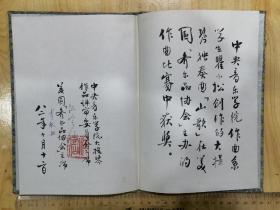 中央音乐学院作曲系
学生瞿小松创作的大提
琴独奏曲《山歌》在美
国齐尔品协会主办的
作曲比赛中获奖。
中央音乐学院大提琴
作品评审委员会主席
美国齐尔品协会主席
八二年十月十日